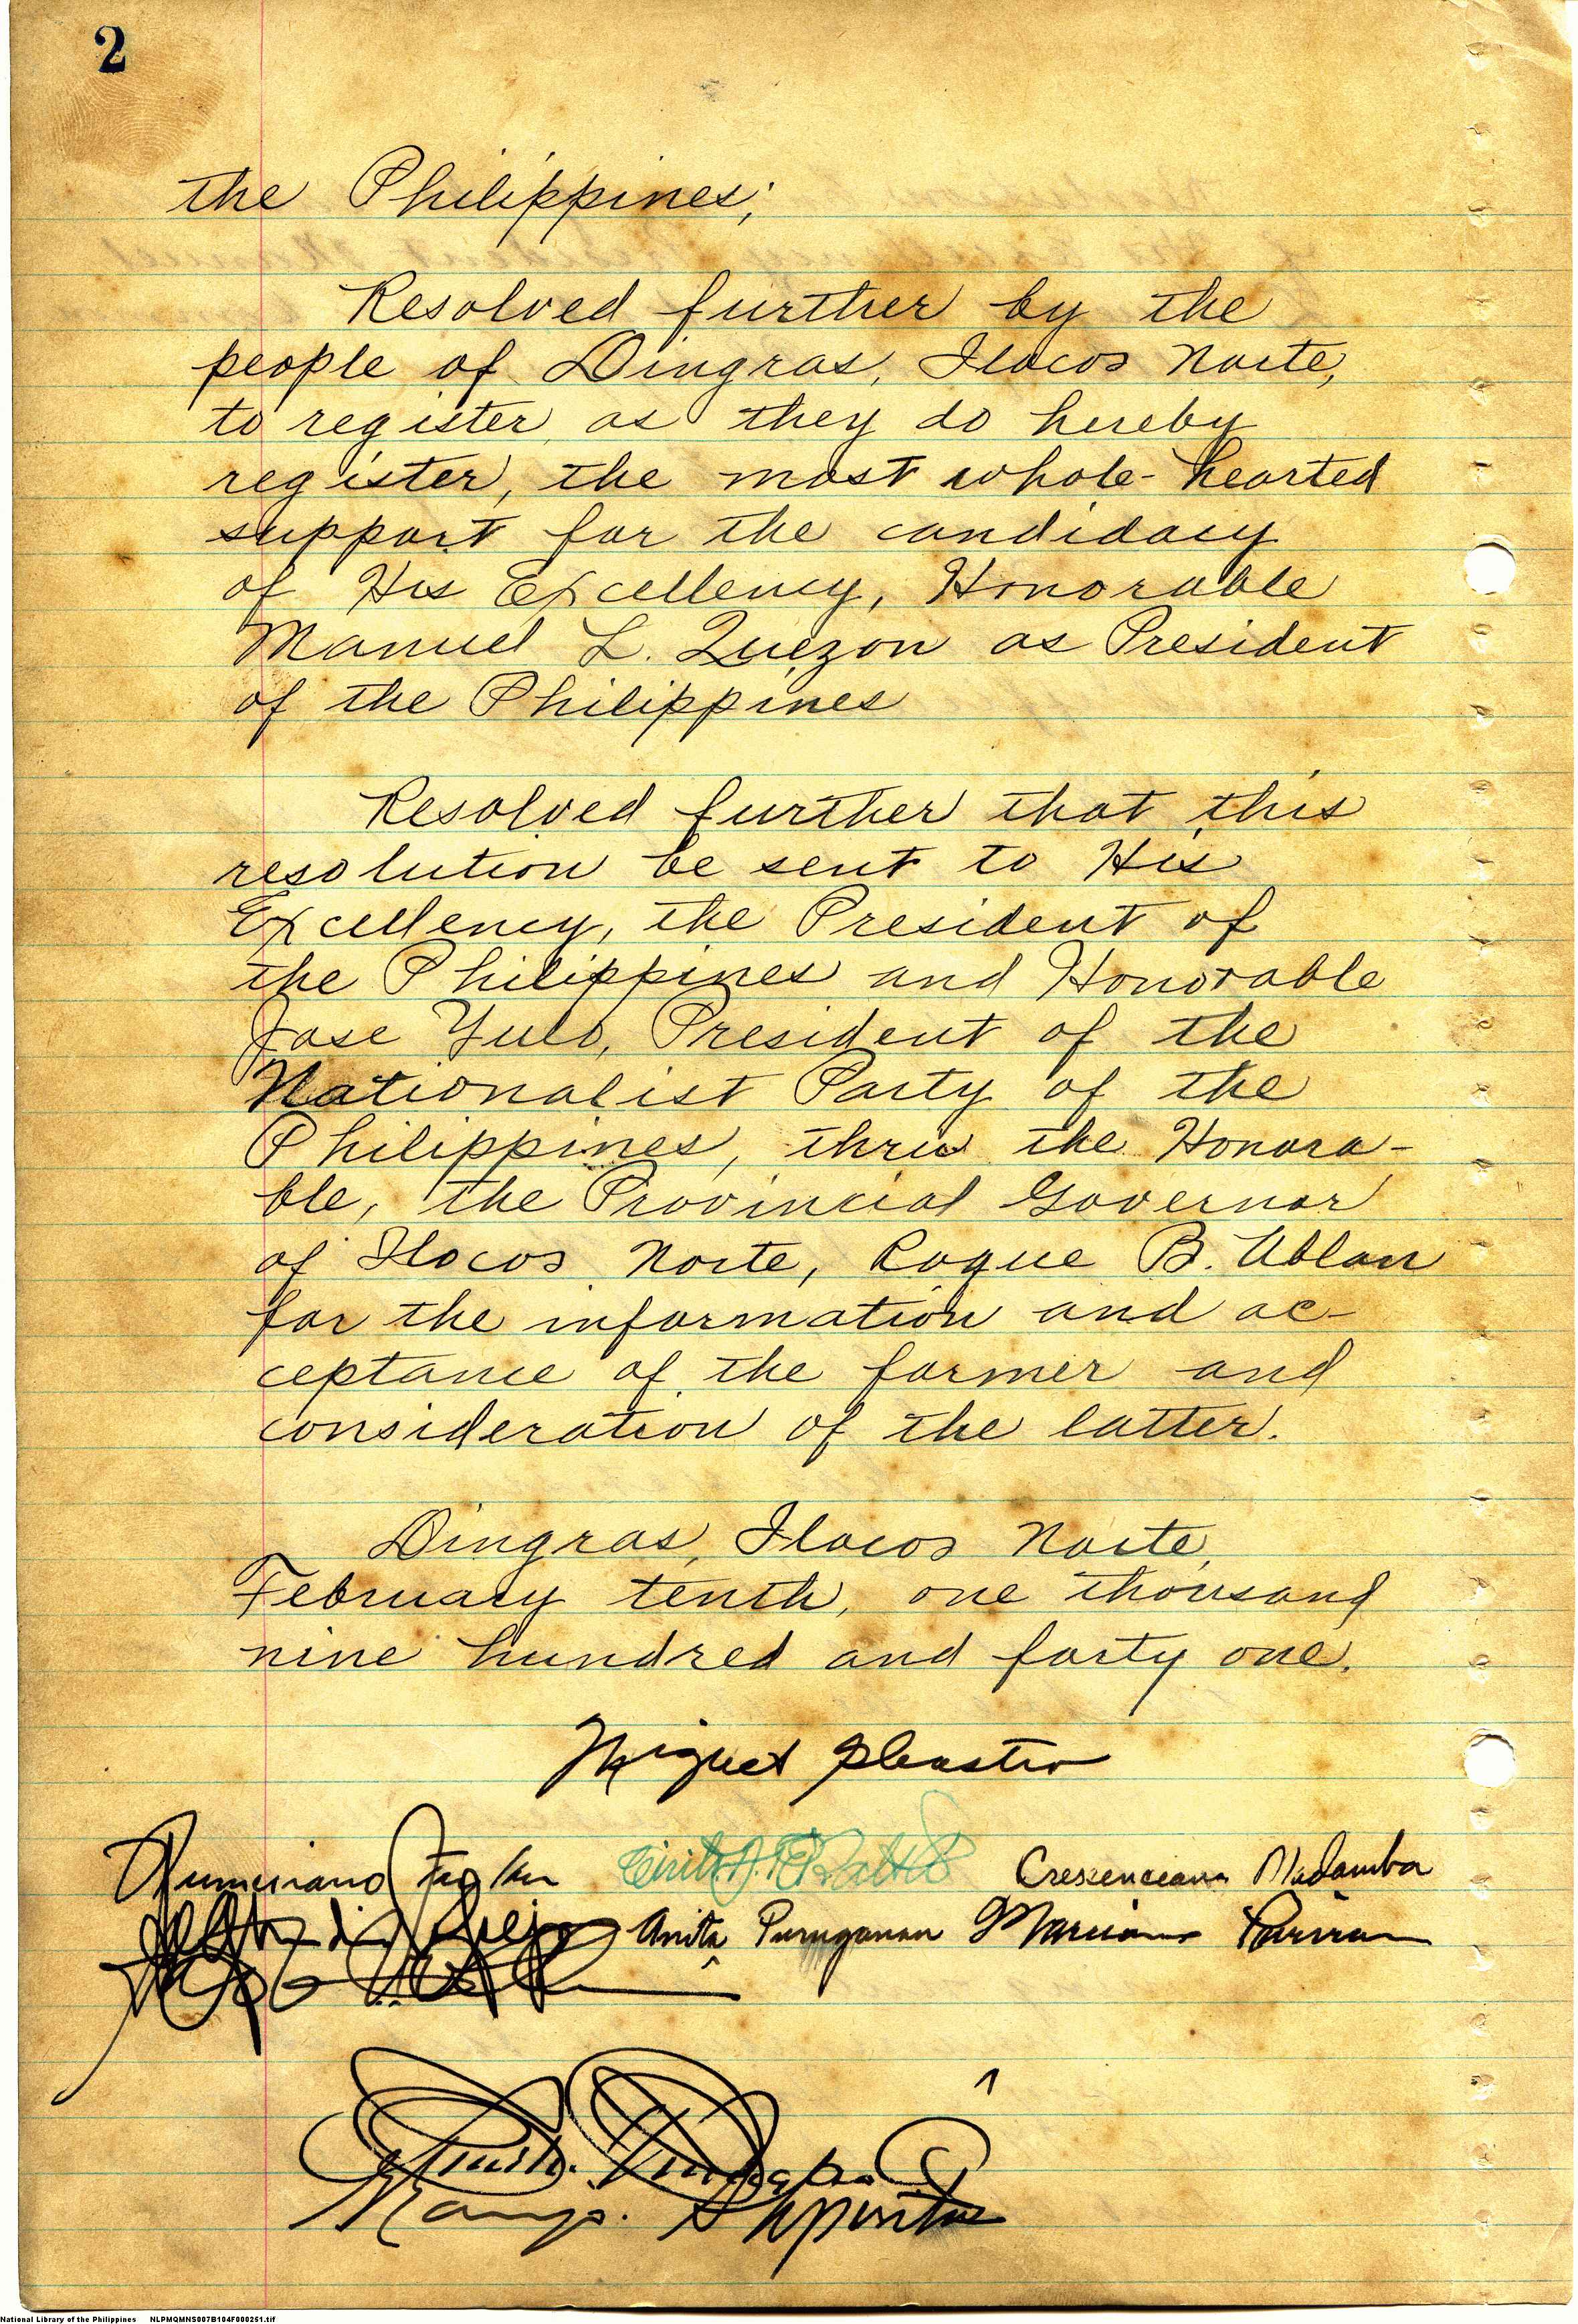 2
the Philippines;
Resolved further by the
people of Dingras, Ilocos Norte,
to register, as they do hereby
register, the most whole-hearted
support for the candidacy
of His Excellency, Honorable
Manuel L. Quezon as President
of the Philippines
Resolved further that this
resolution be sent to His
Excellency, the President of
the Philippines and Honorable
Jose Yulo, President of the
Nationalist Party of the
Philippines, thru the Honora-
ble, the Provincial Governor
of Ilocos Norte, Roque B. Ablan
for the information and ac-
ceptance of the former and
consideration of the latter.
Dingras, Ilocos Norte,
February tenth, one thousand
nine hundred and forty one.
Miguel
Crescenciana Madamba
Anita Puruganan Marciano
National Library of the Philippines NLPMQMNS007B104F000251.tif